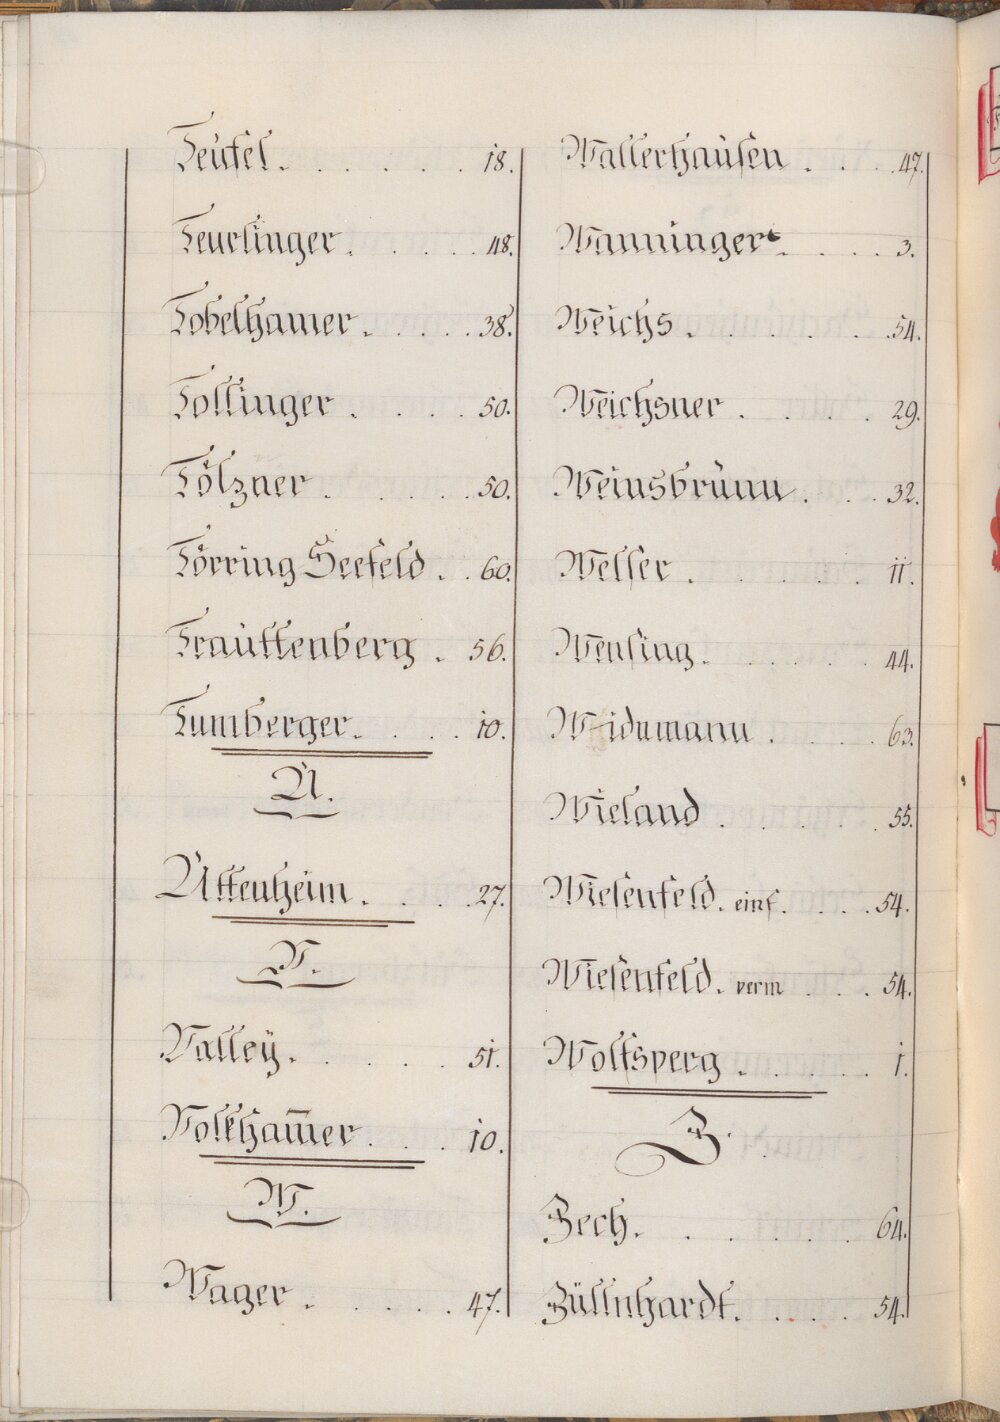 Teufel. . . . . . 18.
Teurlinger . . . . . 48.
Tobelhamer . . . . . 38.
Tollinger . . . . 50.
Tölzner . . . . . 50.
Törring Seefeld . . 60.
Trauttenberg . 56.
Tumberger. . . . . 10.
U.
Uttenheim . . . . 27.
V.
Valleÿ. . . . . 51.
Volkham̅er . . . 10.
W.
Wager . . . . . 47.
Wallerhausen . . . . 47.
Wanninger . . . . 3.
Weichs . . . . . . 54.
Weichsner . . . . . 29.
Weinsbrunn . . . 32.
Welser . . . . . . 11.
Wensing . . . . . . 44.
Widnmann . . . . 63.
Wieland . . . . . 55.
Wiesenfeld. einf. . . . 54.
Wiesenfeld. verm . . . 54.
Wolfsperg . . . . . 1.
Z.
Zech. . . . . . . 64.
Züllnhardt. . . . . 54.